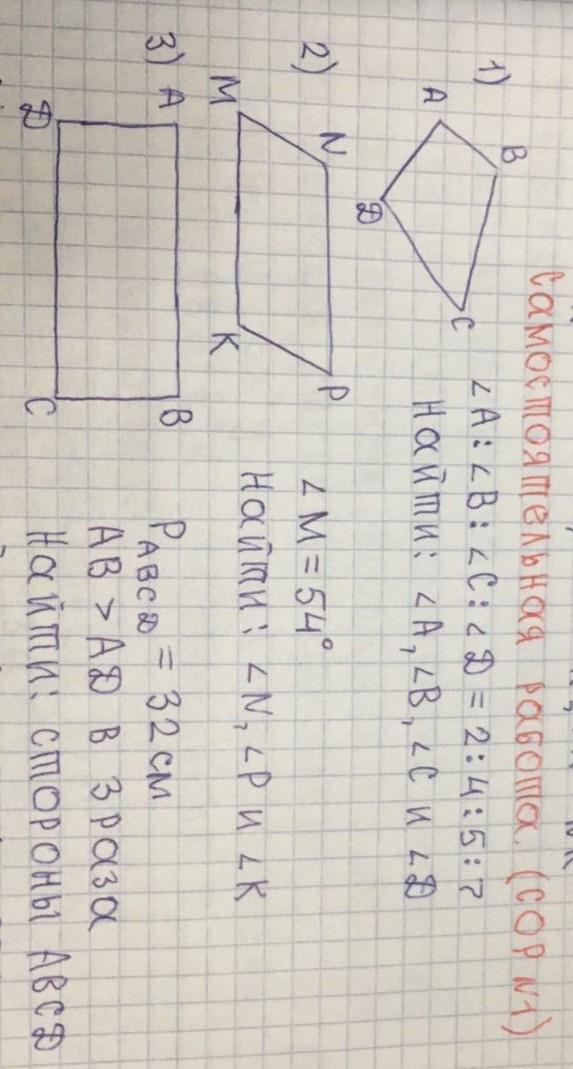 Самостоятельная работа. (СОР №1)
1)
A
B
C
D
∠A:∠B:∠C:∠D=2:4:5:7
Найти: ∠A,∠B,∠C и ∠D
2)
M
N
P
K
∠M=54°
Найти: ∠N,∠P и ∠K
3)
A
B
C
D
P ABCD = 32 см
AB > AD в 3 раза
Найти: стороны ABCD